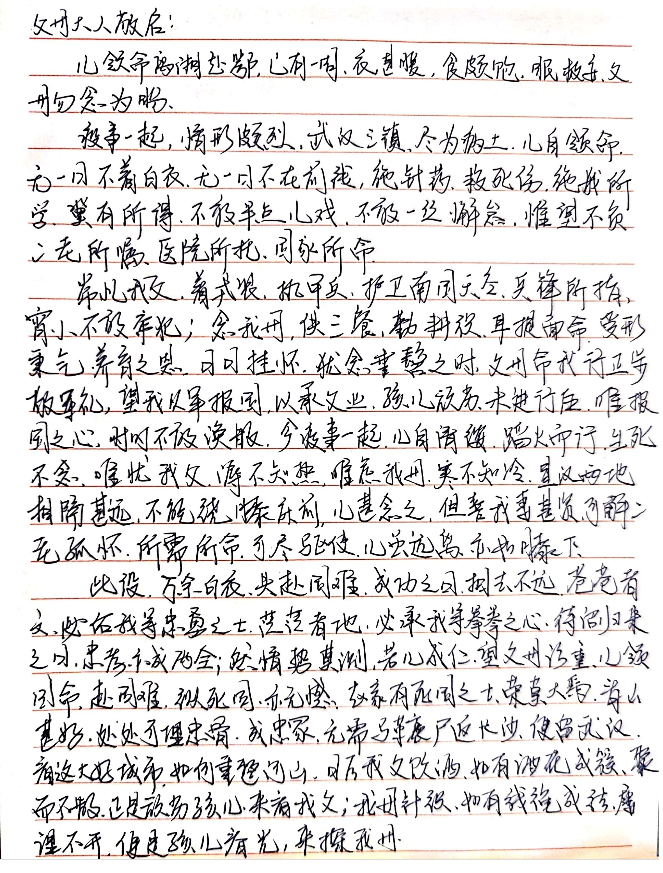 父母大人敬启:
儿领命离湘赴鄂,已有一周,衣甚暖,食颇饱,眠
母勿念为盼、
疫事一起,情形颇烈,武汉三镇,尽为病土,儿自领命,
无一日不着白衣,无一日不在前线,施针药,救死伤,施我所
学,冀有所得,不敢半点儿戏,不敢一丝懈怠,惟望不负
二老所嘱、医院所托、国家所命
常忆我父,着武装,执甲兵,护卫南国天空,兵锋所指,
宵小不敢来犯;念我母,供三餐,勤耕役,耳提面命,受形
禀气,养育之恩,日日挂怀,犹念垂髫之时,父母命我行正步
敬军礼,望我从军报国,以承父业,孩儿放荡,未进行伍,唯报
国之心,时时不敢涣散,今疫事一起,儿自请缨,蹈火而行,生死
不念,唯忧我父,溽不知热,唯忧我母,寒不知冷,星汉两地
相隔甚远,不能绕膝在前,儿甚念之,但吾我妻甚贤,可解二
老孤怀,所需所命,可尽驱使,儿虽远离,亦如膝下、
此役,万余白衣,共赴国难,成功之日,相去不远,苍苍者
天,必佑我等忠勇之士,茫茫者地,必承我等拳拳之心,待诏归来
之日,忠孝亦成两全;然情势莫测,若儿成仁,望父母珍重,儿领
国命,赴国难,纵死国,亦无憾、赵家有死国之士,荣莫大焉,青山
甚好,处处可埋忠骨,成忠冢,无需马革裹尸返长沙,便留武汉,
看这大好城市,如何重整河山,日后我父饮酒,如有酒花成簇、聚
而不散,正是放荡孩儿,来看我父;我母针织,如有线绕成结,屡
理不开,便是孩儿春光,来探我母